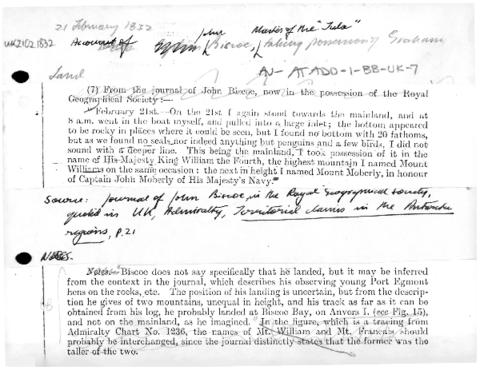 21 February 1832
UK2102.1832
Account of John Biscoe, Master of the "Tula"
taking possession of Graham
Land
AU-ATADD-1-BB-UK-7
(7) From the journal of John Biscoe, now in the possession of the Royal
Geographical Society:—
"February 21st.—On the 21st I again stood towards the mainland, and at
8 a.m. went in the boat myself, and pulled into a large inlet; the bottom appeared
to be rocky in places where it could be seen, but I found no bottom with 20 fathoms,
but as we found no seals nor indeed anything but penguins and a few birds, I did not
sound with a deeper line. This being the mainland, I took possession of it in the
name of His Majesty King William the Fourth, the highest mountain I named Mount
Williams on the same occasion: the next in height I named Mount Moberly, in honour
of Captain John Moberly of His Majesty's Navy."
Source: Journal of John Biscoe in the Royal Geographical Society,
quoted in UK, Admiralty, Territorial claims in the Antarctic
regions, p.21
NOTES.
Note.—Biscoe does not say specifically that he landed, but it may be inferred
from the context in the journal, which describes his observing young Port Egmont
hens on the rocks, etc. The position of his landing is uncertain, but from the description
he gives of two mountains, unequal in height, and his track as far as it can be
obtained from his log, he probably landed at Biscoe Bay, on Anvers I. (see Fig. 15),
and not on the mainland, as he imagined. In the figure, which is a tracing from
Admiralty Chart No. 1236, the names of Mt. William and Mt. Francais should
probably be interchanged, since the journal distinctly states that the former was the
taller of the two.